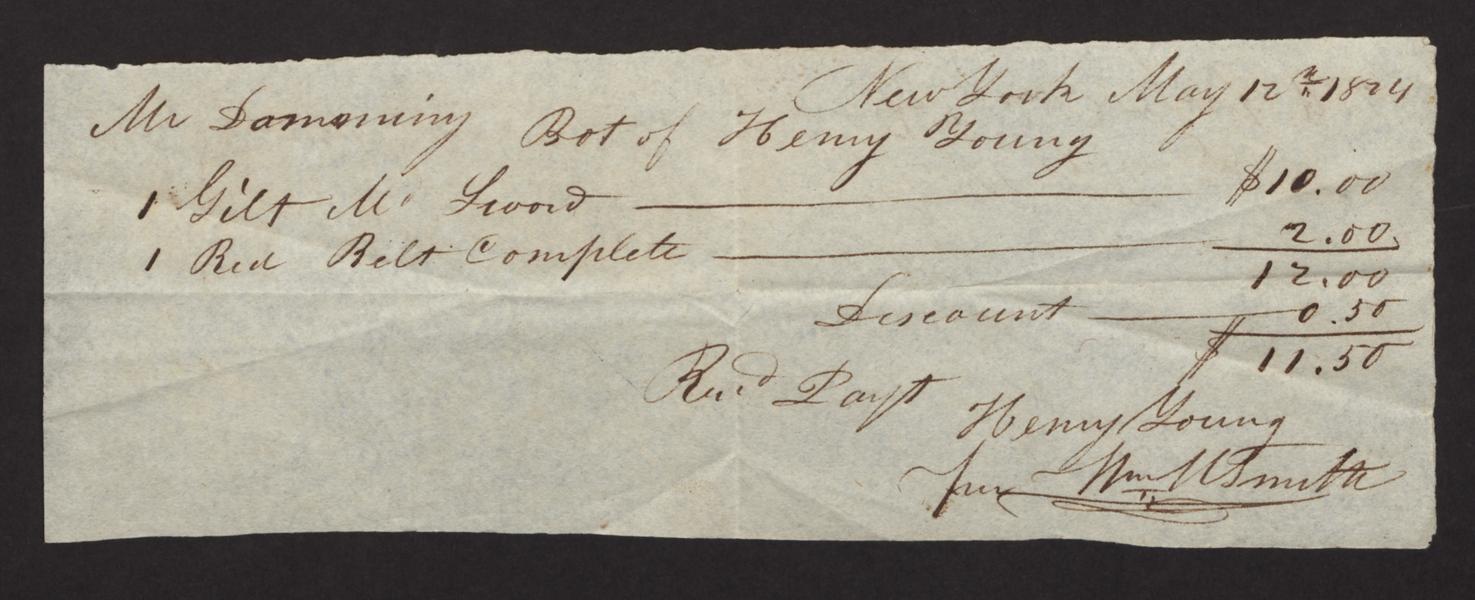 New York May 12th 1824
Mr Dameniny Bot of Henry Young
1 Gilt Mr Sword $10.00
1 Red Belt Complete 2.00
12.00
Discount 0.50
$ 11.50
Recd Payt
Henry Young
per Wm Smith